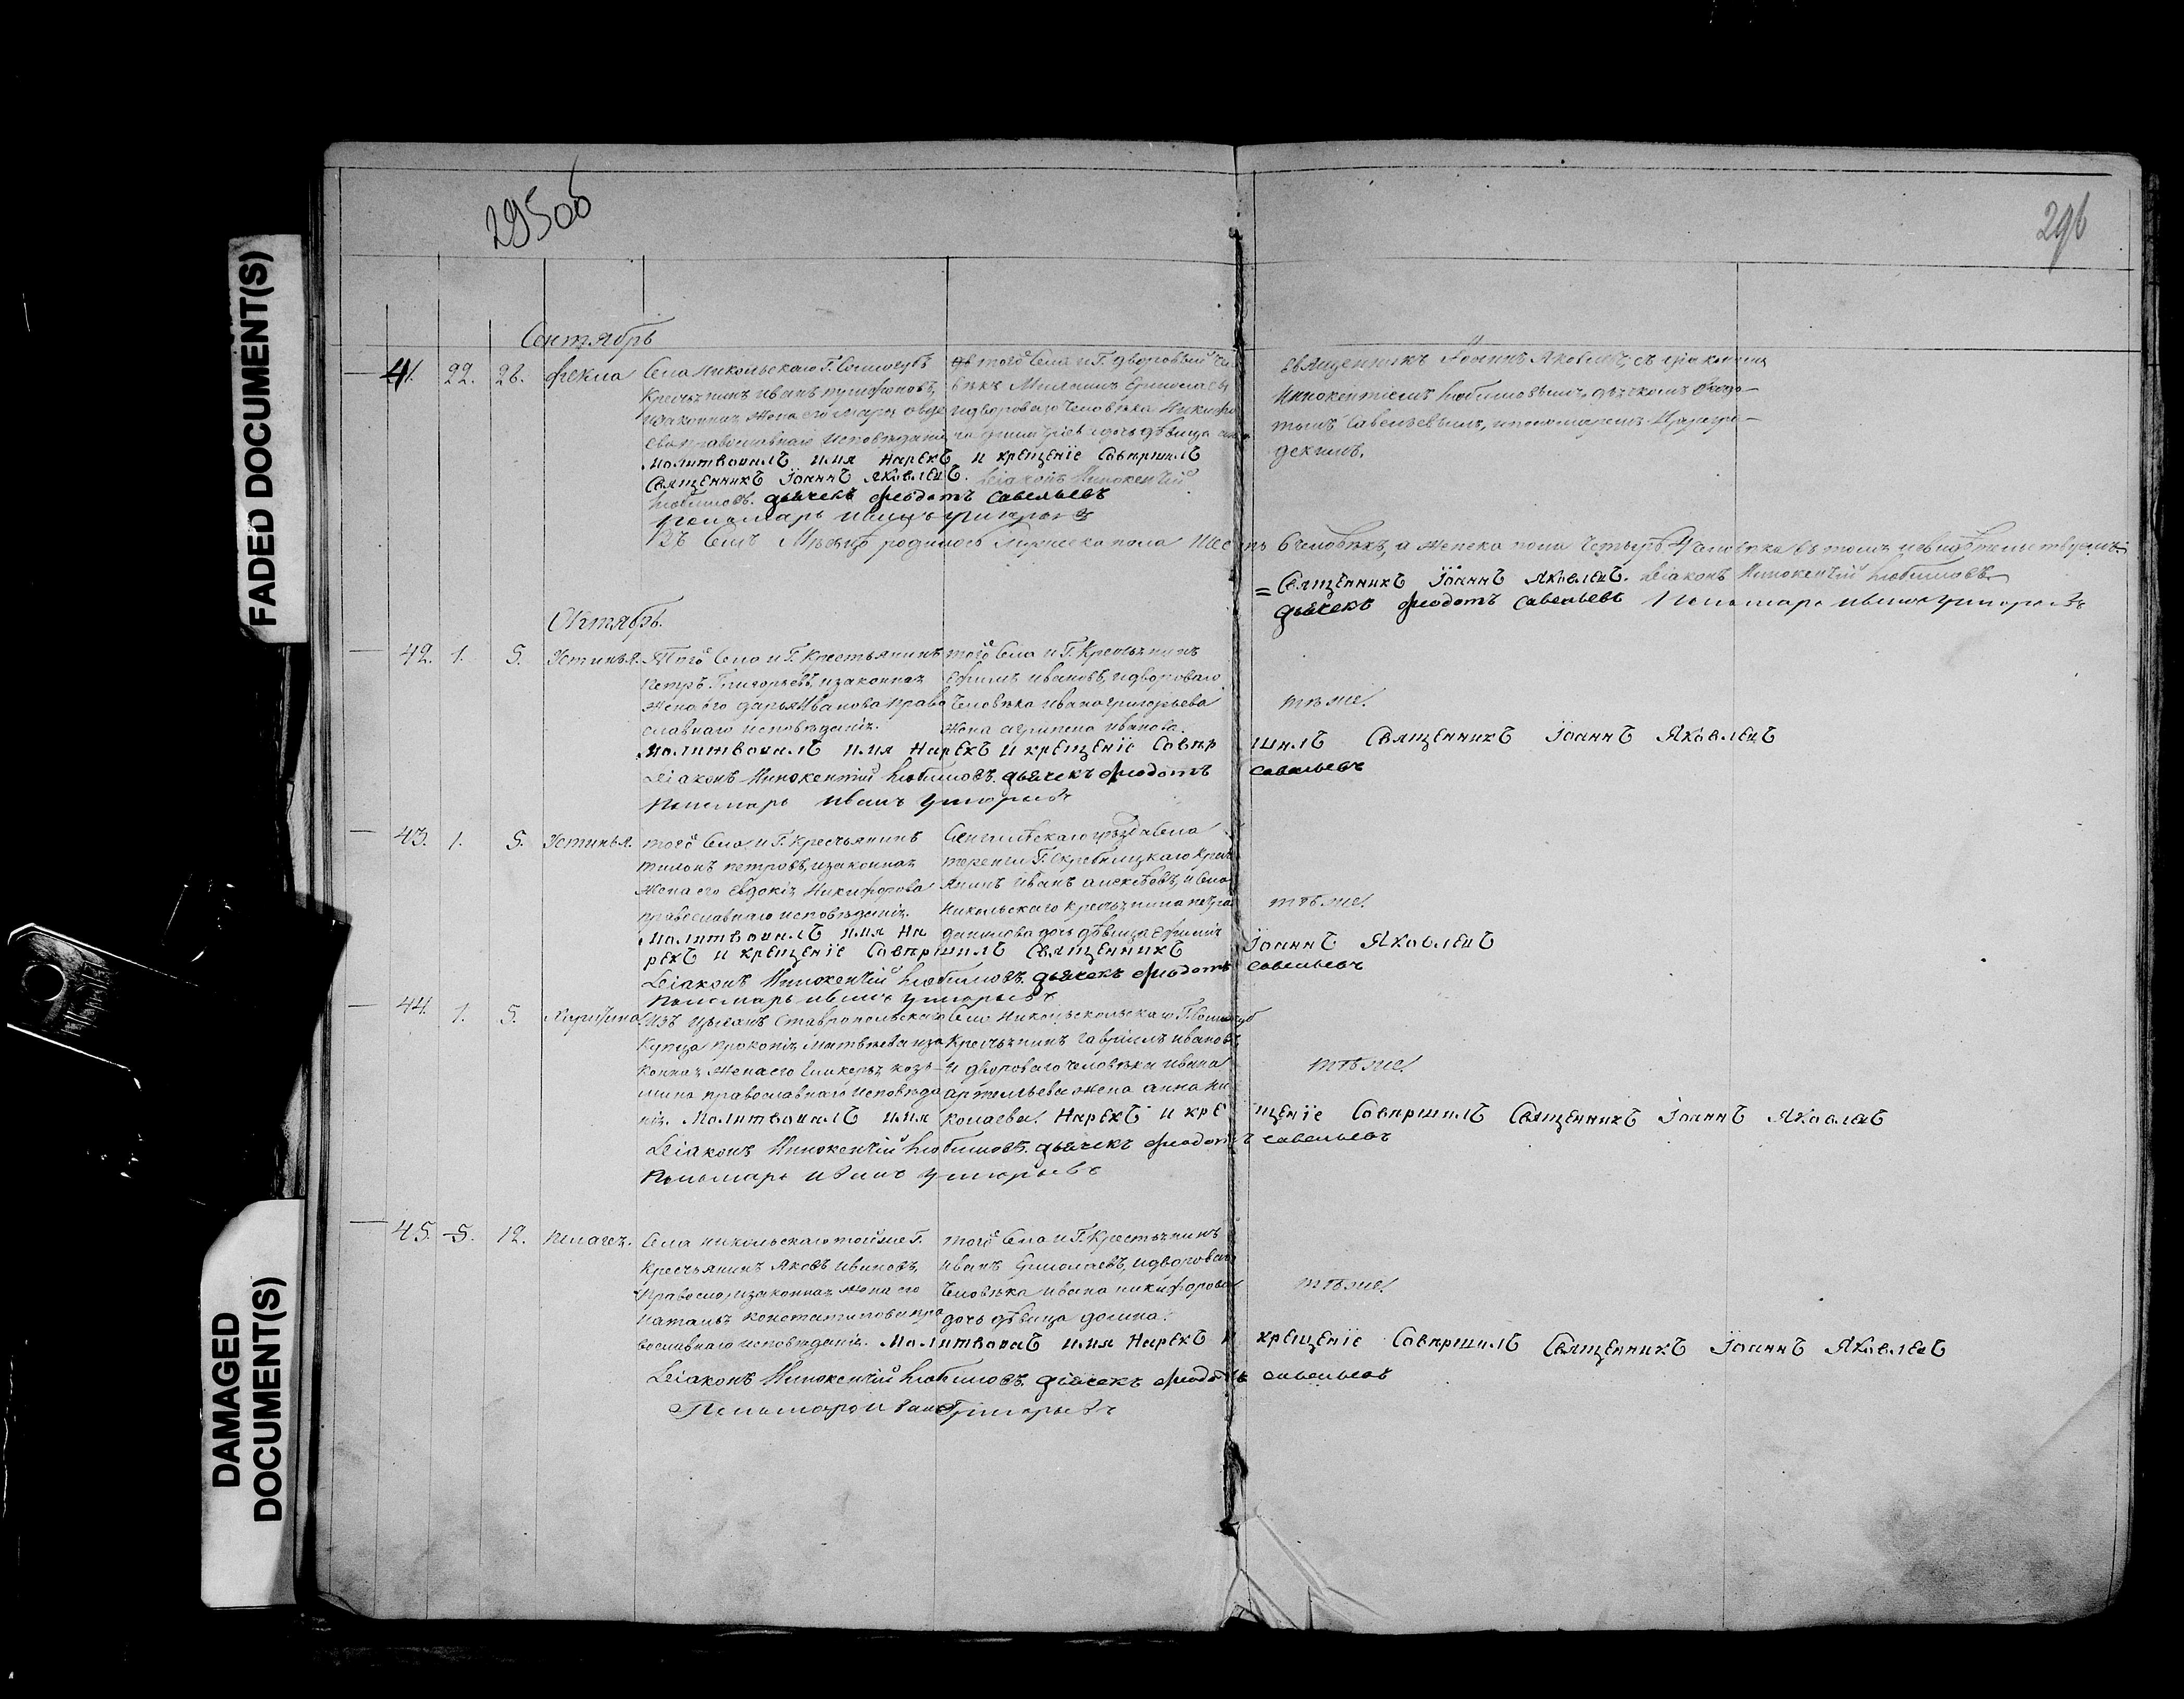 FADED DOCUMENT(S)
DAMAGED
DOCUMENT(S)
295об
296
Сентябрь
41. 22. 26. Фекла
Села Никольскаго Г.
Крестьянинъ Иванъ
законная жена его
православнаго исповѣданія
Молитвовалъ имя нарекъ и крещеніе совершилъ
Священникъ Іоаннъ Яковлевъ. Діаконъ Иннокентій
Любимовъ. дьячекъ Феодотъ Савельевъ
Пономарь Иванъ Григорьевъ
того села и Г. дворовый
и двороваго человѣка
дочь дѣвица
Священникъ Іоаннъ Яковлевъ, съ діакономъ
Иннокентіемъ Любимовымъ, дьячкомъ Ѳеодо-
томъ Савельевымъ, и пономаремъ
Въ семъ Мѣсяцѣ родилось мужеска пола шесть 6 человѣкъ, а женска пола четыре 4 человѣка въ томъ и свидѣтельствуемъ:
= Священникъ Іоаннъ Яковлевъ. Діаконъ Иннокентій Любимовъ
дьячекъ Феодотъ Савельевъ Пономарь Иванъ Григорьевъ
Октябрь.
42. 1. 5. Устинья.
Того села и Г. Крестьянинъ
Петръ Григорьевъ, и законная
жена его Дарья Иванова право
славнаго исповѣданія.
того села и Г. Крестьянинъ
Ефимъ Ивановъ, и двороваго
человѣка Ивана Григорьева
жена Агрипина Иванова.
тѣ же.
Молитвовалъ имя нарекъ и крещеніе совершилъ Священникъ Іоаннъ Яковлевъ
Діаконъ Иннокентій Любимовъ. дьячекъ Феодотъ Савельевъ
Пономарь Иванъ Григорьевъ
43. 1. 5. Устинья.
того села и Г. Крестьянинъ
Петровъ, и законная
жена его Евдокія Никифорова
православнаго исповѣданія.
уѣзда села
Г. Скребницкаго Кресть
янинъ Иванъ Алексѣевъ, и села
Никольскаго крестьянина Петра
Данилова дочь дѣвица Ефимія
тѣ же.
Молитвовалъ имя на
рекъ и крещеніе совершилъ Священникъ Іоаннъ Яковлевъ
Діаконъ Иннокентій Любимовъ. дьячекъ Феодотъ Савельевъ
Пономарь Иванъ Григорьевъ
44. 1. 5.
Изъ цыганъ Ставропольскаго
Купца Прокопія Матвѣева и за
конная жена его Гликерья Козь-
мина православнаго исповѣда
нія.
Села Никольскаго Г.
Крестьянинъ Гавріилъ Ивановъ
и двороваго человѣка Ивана
Артемьева жена Анна Ни
колаева.
тѣ же.
Молитвовалъ имя нарекъ и крещеніе совершилъ Священникъ Іоаннъ Яковлевъ
Діаконъ Иннокентій Любимовъ. дьячекъ Феодотъ Савельевъ
Пономарь Иванъ Григорьевъ
45. 5. 12. Пелагея.
Села Никольскаго той же Г.
Крестьянинъ Яковъ Ивановъ,
и законная жена его
Наталья Константинова пра
вославнаго исповѣданія.
того села и Г. Крестьянинъ
Иванъ Ермолаевъ, и двороваго
человѣка Ивана Никифорова
дочь дѣвица Домна.
тѣ же.
Молитвовалъ имя нарекъ и крещеніе совершилъ Священникъ Іоаннъ Яковлевъ
Діаконъ Иннокентій Любимовъ. дьячекъ Феодотъ Савельевъ
Пономарь Иванъ Григорьевъ